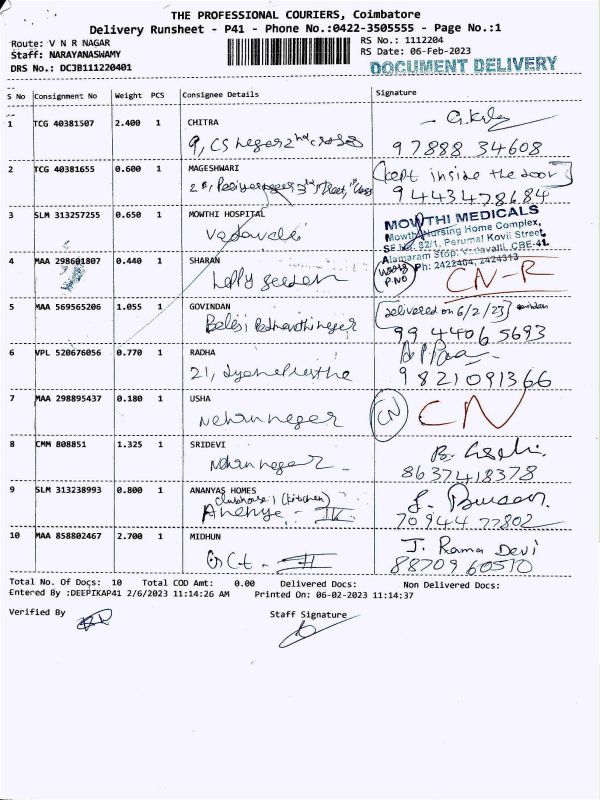 THE PROFESSIONAL COURIERS, Coimbatore
Delivery Runsheet - P41 - Phone No.:0422-3505555 - Page No.:1
Route: V N R NAGAR
RS No.: 1112204
Staff: NARAYANASWAMY
RS Date: 06-Feb-2023
DRS No.: DCJB111220401
DOCUMENT DELIVERY
S No Consignment No Weight PCS Consignee Details Signature
1 TCG 40381507 2.400 1 CHITRA
9, CS 2nd cross
97888 34608
2 TCG 40381655 0.600 1 MAGESHWARI
kept inside the door
9443478684
3 SLM 313257255 0.650 1 MOWTHI HOSPITAL
Vadavalli
MOWTHI MEDICALS
Mowthi Nursing Home Complex,
SF.No. 82/1, Perumal Kovil Street,
Alamaram Stop, Vadavalli, CBE-41.
Ph: 2422404, 2424313
4 MAA 298601807 0.440 1 SHARAN
P.NO
CN-R
5 MAA 569565206 1.055 1 GOVINDAN
Delivered on 6/2/23
99 44065693
6 VPL 520676056 0.770 1 RADHA
21,
9821091366
7 MAA 298895437 0.180 1 USHA
Nehru nagar
CN
CN
8 CMM 808851 1.325 1 SRIDEVI
Nehru nagar
8637418378
9 SLM 313238993 0.800 1 ANANYAS HOMES
clubhouse 1 (kitchen)
IV
70944 77802
10 MAA 858802467 2.700 1 MIDHUN
J. Rama Devi
88709 60510
Total No. Of Docs: 10 Total COD Amt: 0.00 Delivered Docs: Non Delivered Docs:
Entered By :DEEPIKAP41 2/6/2023 11:14:26 AM Printed On: 06-02-2023 11:14:37
Verified By
Staff Signature